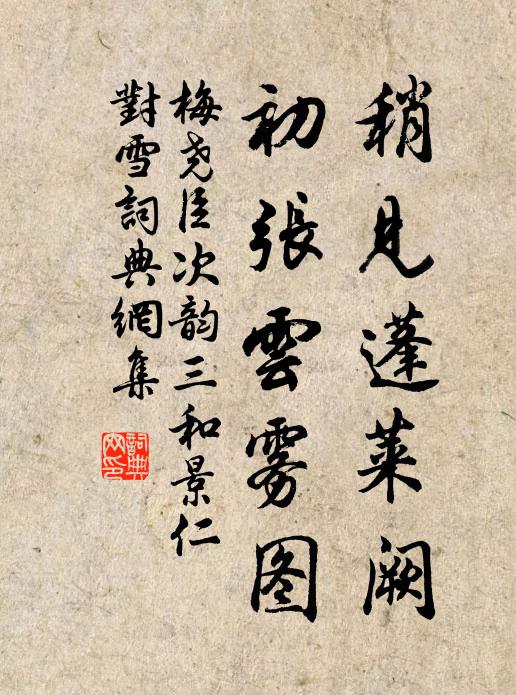 稍見蓬萊闕
初張雲雾图
梅尧臣次韵三和景仁
對雪詞典網集
詞典网印